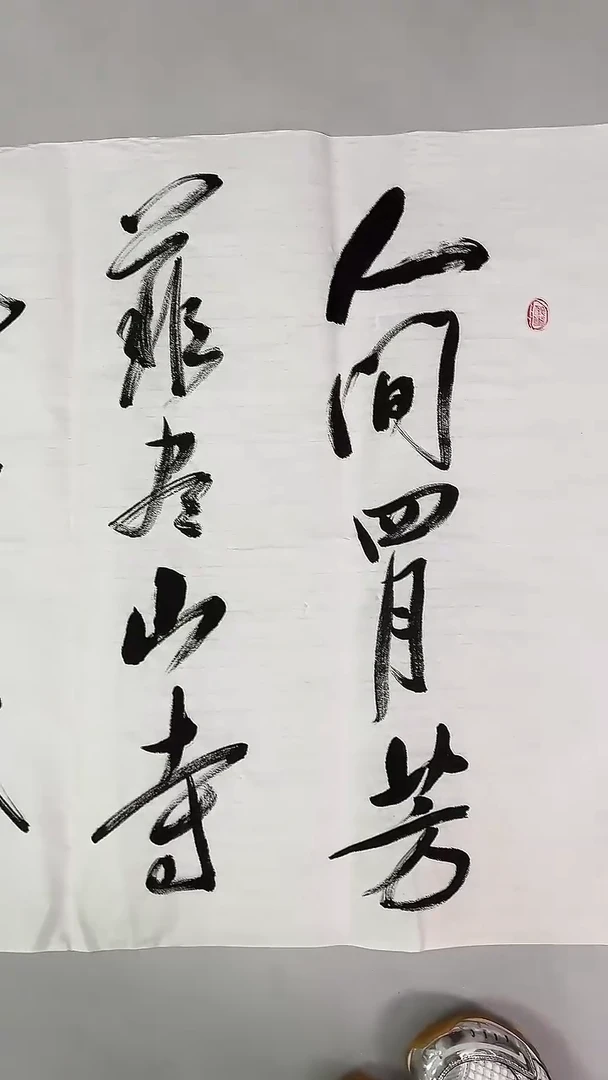 人间四月芳
菲尽山寺